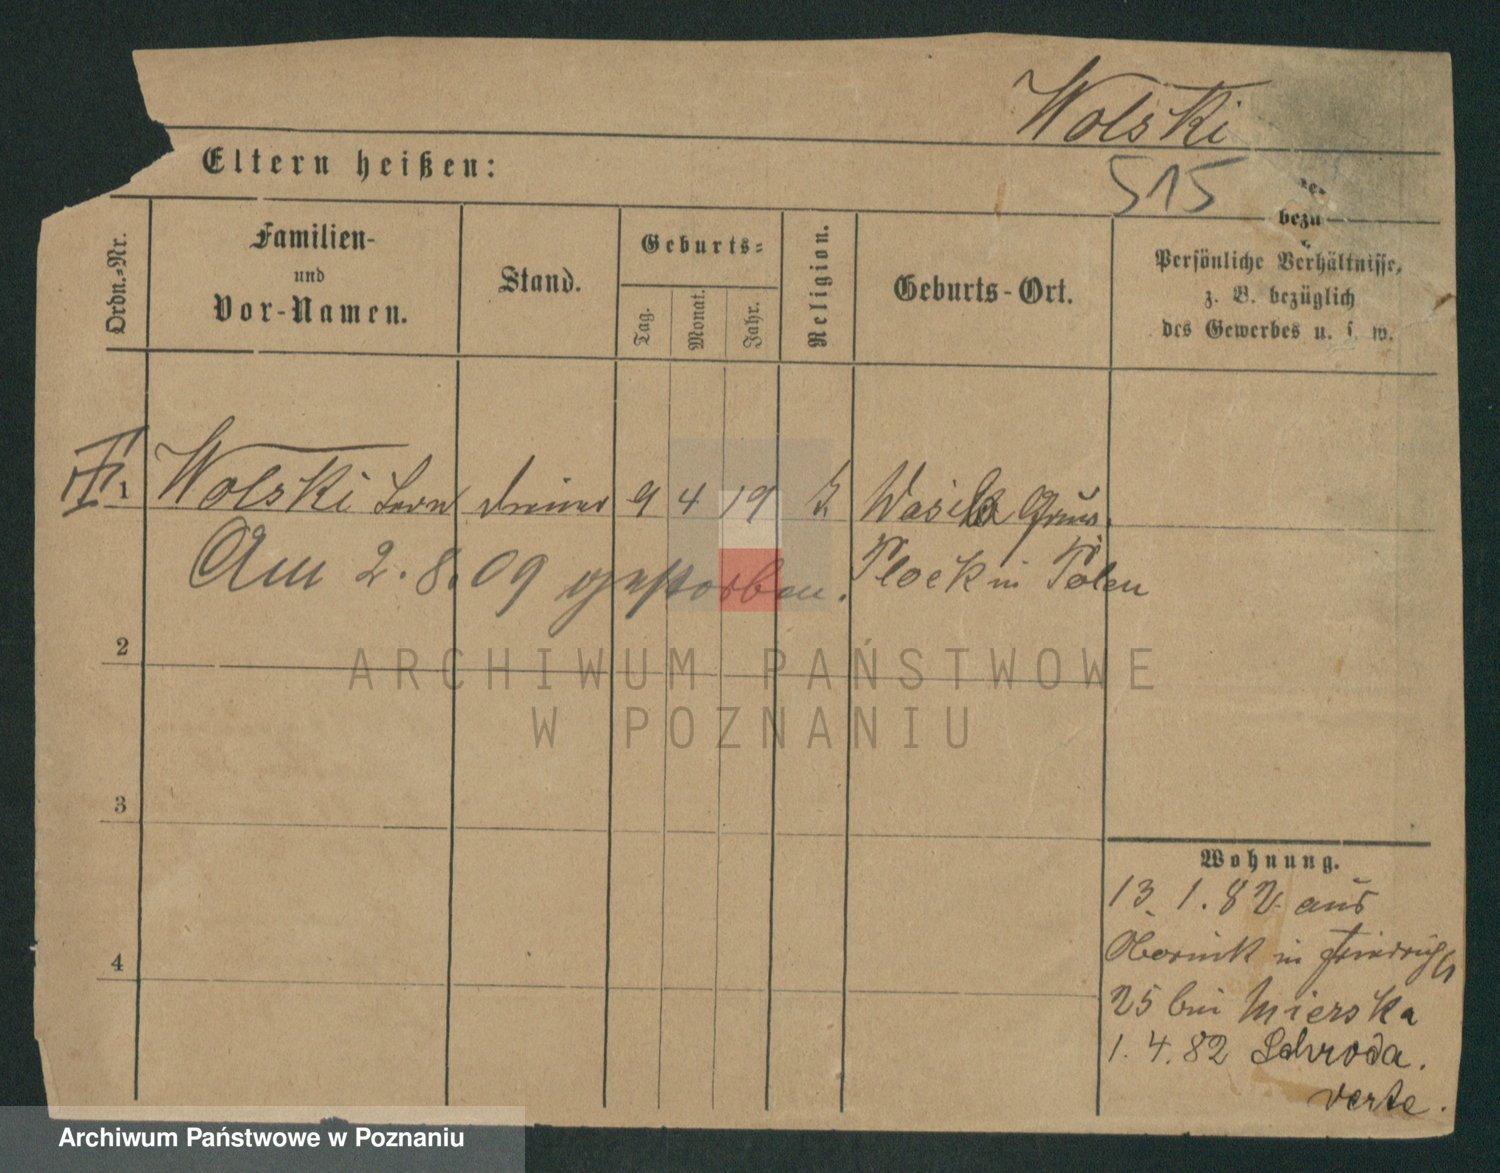 Wolski
515
Eltern heißen:
bezü
Ordn.-Nr.
Familien-
und
Vor-Namen.
Stand.
Geburts-
Tag.
Monat.
Jahr.
Religion.
Geburts-Ort.
Persönliche Verhältnisse,
z. B. bezüglich
des Gewerbes u. s. w.
1 Wolski 9 4 19
Am 2.8.09 gestorben.
Plock in Polen
2
ARCHIWUM PAŃSTWOWE
W POZNANIU
3
4
Wohnung.
13. 1. 82 aus
Obornik in Friedrichstr
25 bei Mierska
1. 4. 82 Schroda.
verte.
Archiwum Państwowe w Poznaniu